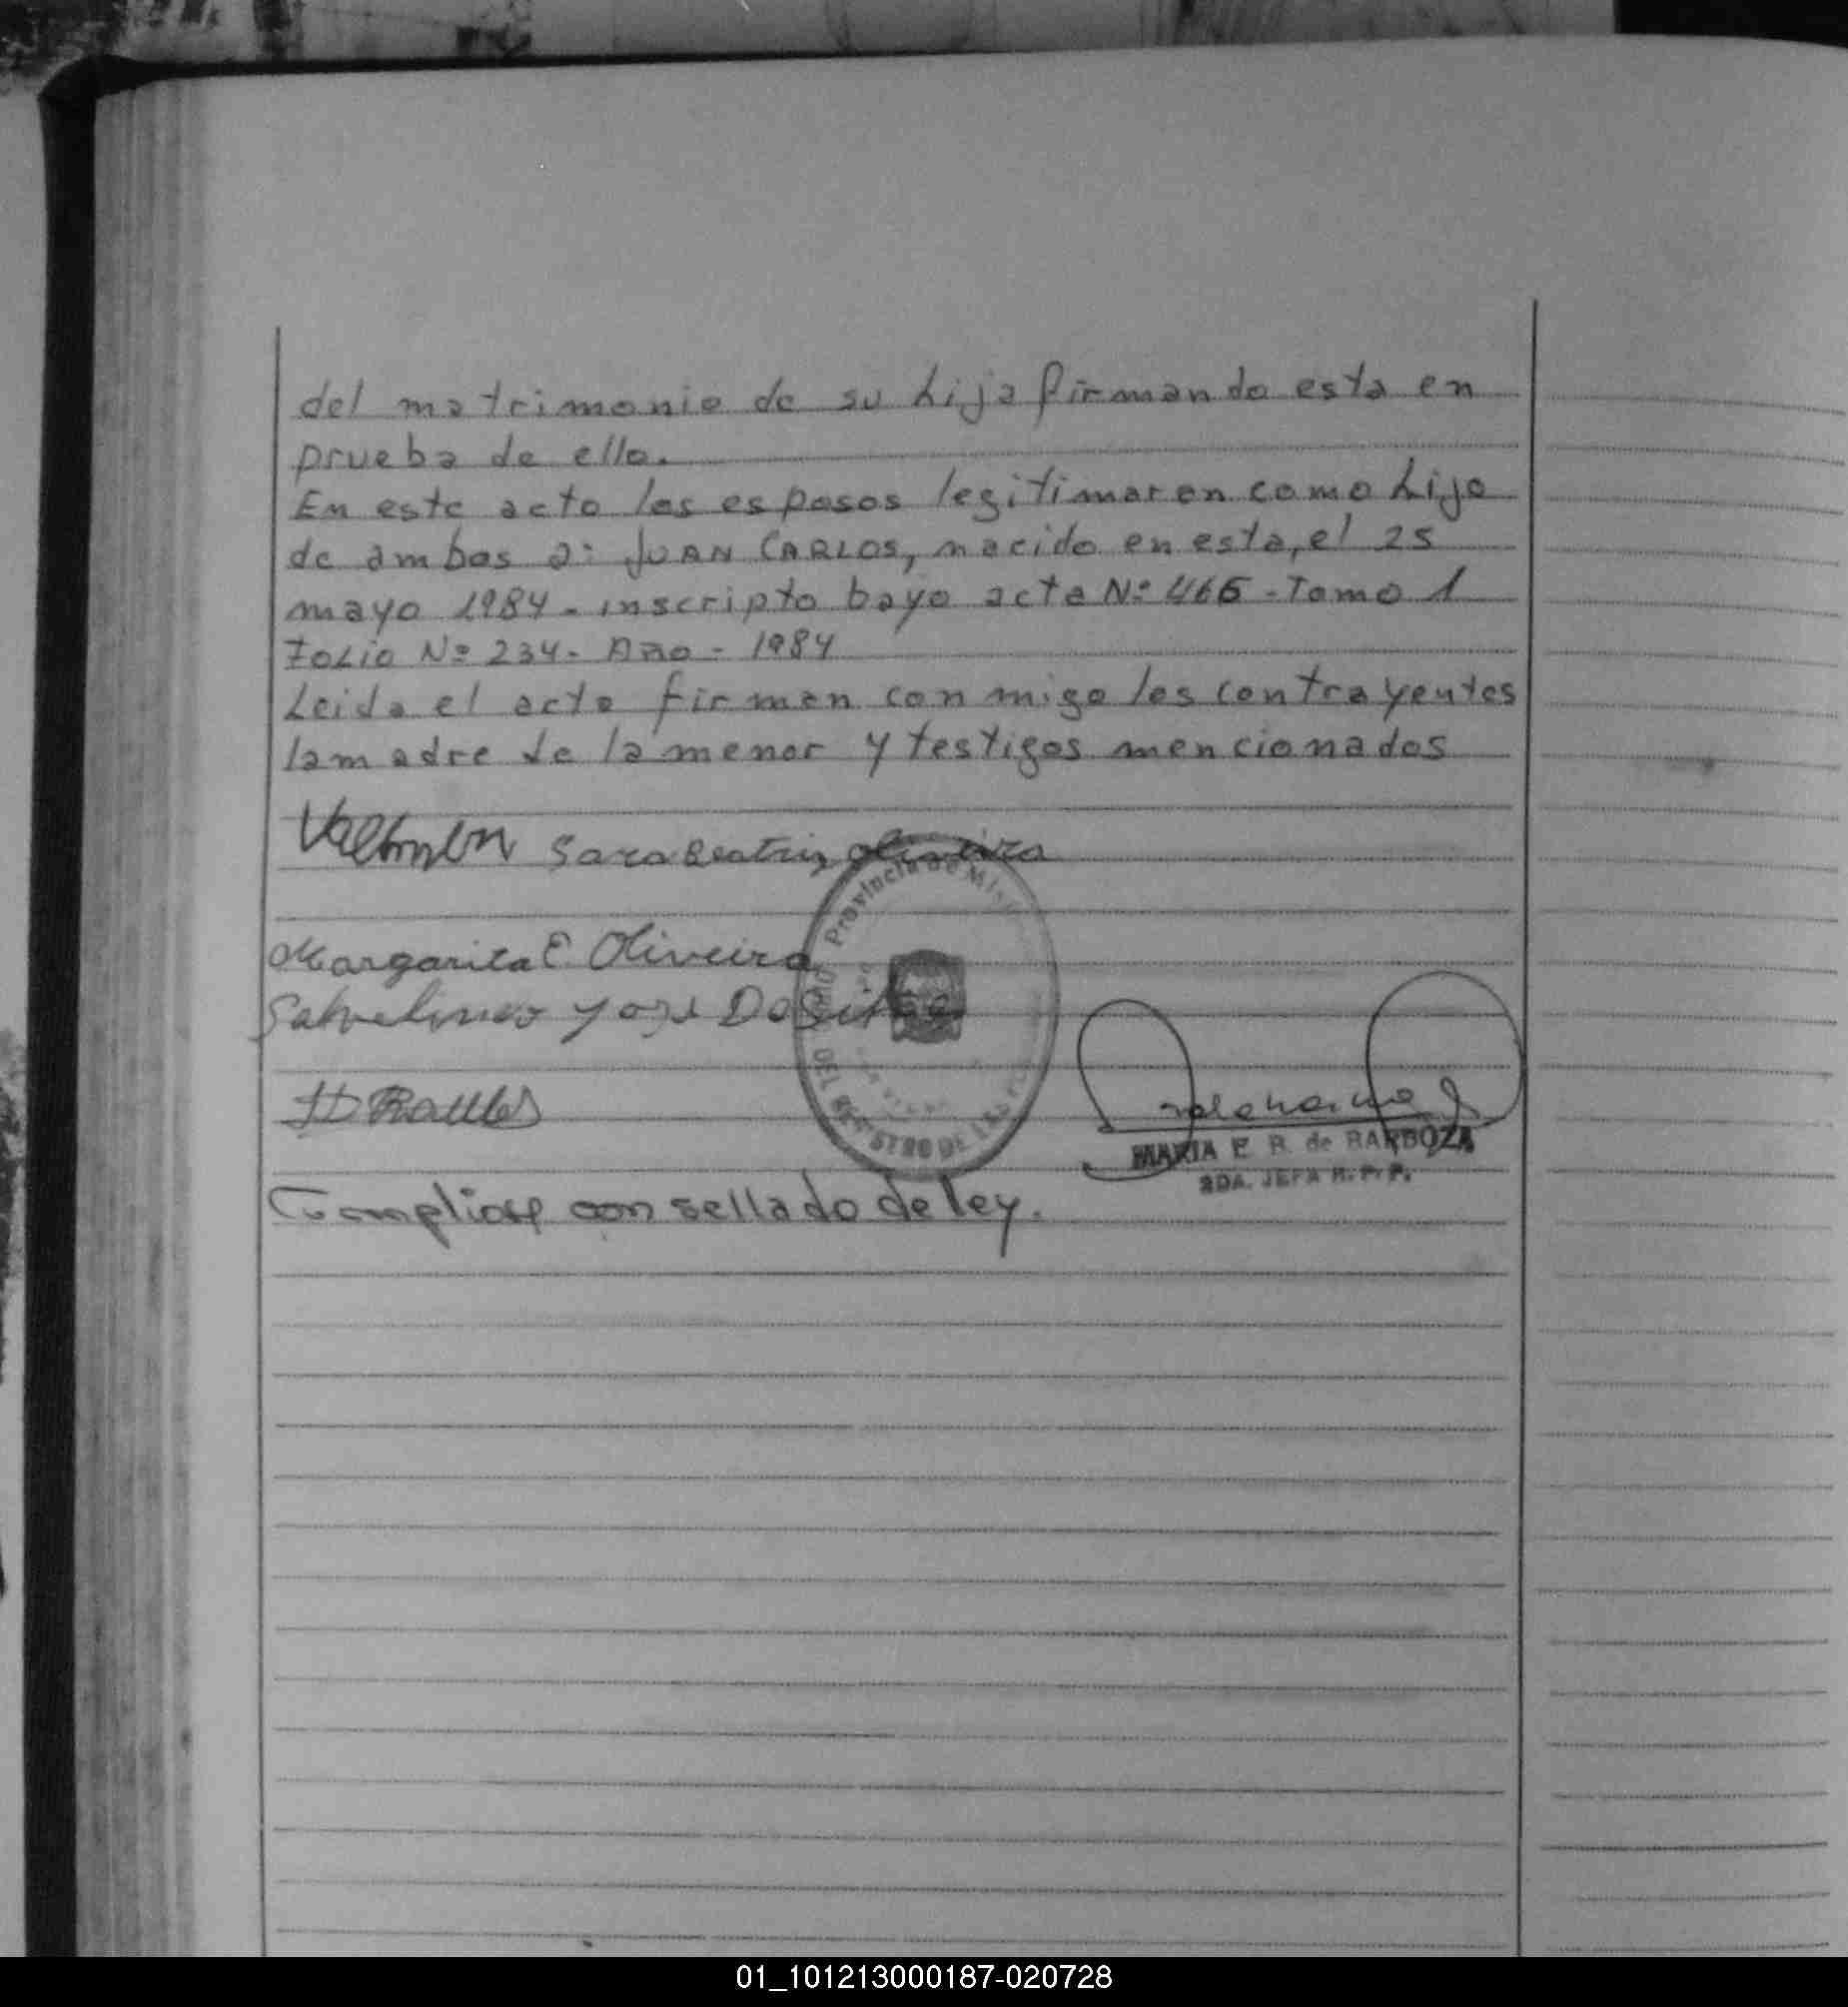 del matrimonio de su hija firmando esta en
prueba de ello.
En este acto los esposos legitimaron como hijo
de ambos a: JUAN CARLOS, nacido en esta, el 25
mayo 1984 - inscripto bayo acta Nº 466 - Tomo 1
Folio Nº 234 - Año - 1984
Leida el acta firman conmigo los contrayentes
la madre de la menor y testigos mencionados
Sara Beatriz Oliveira
Provincia de Misi
Margarita E. Oliveira
REGISTRO DE LAS
MARIA E. R. de BARBOZA
2DA. JEFA R.P.P.
Cumpliose con sellado de ley.
01_101213000187-020728